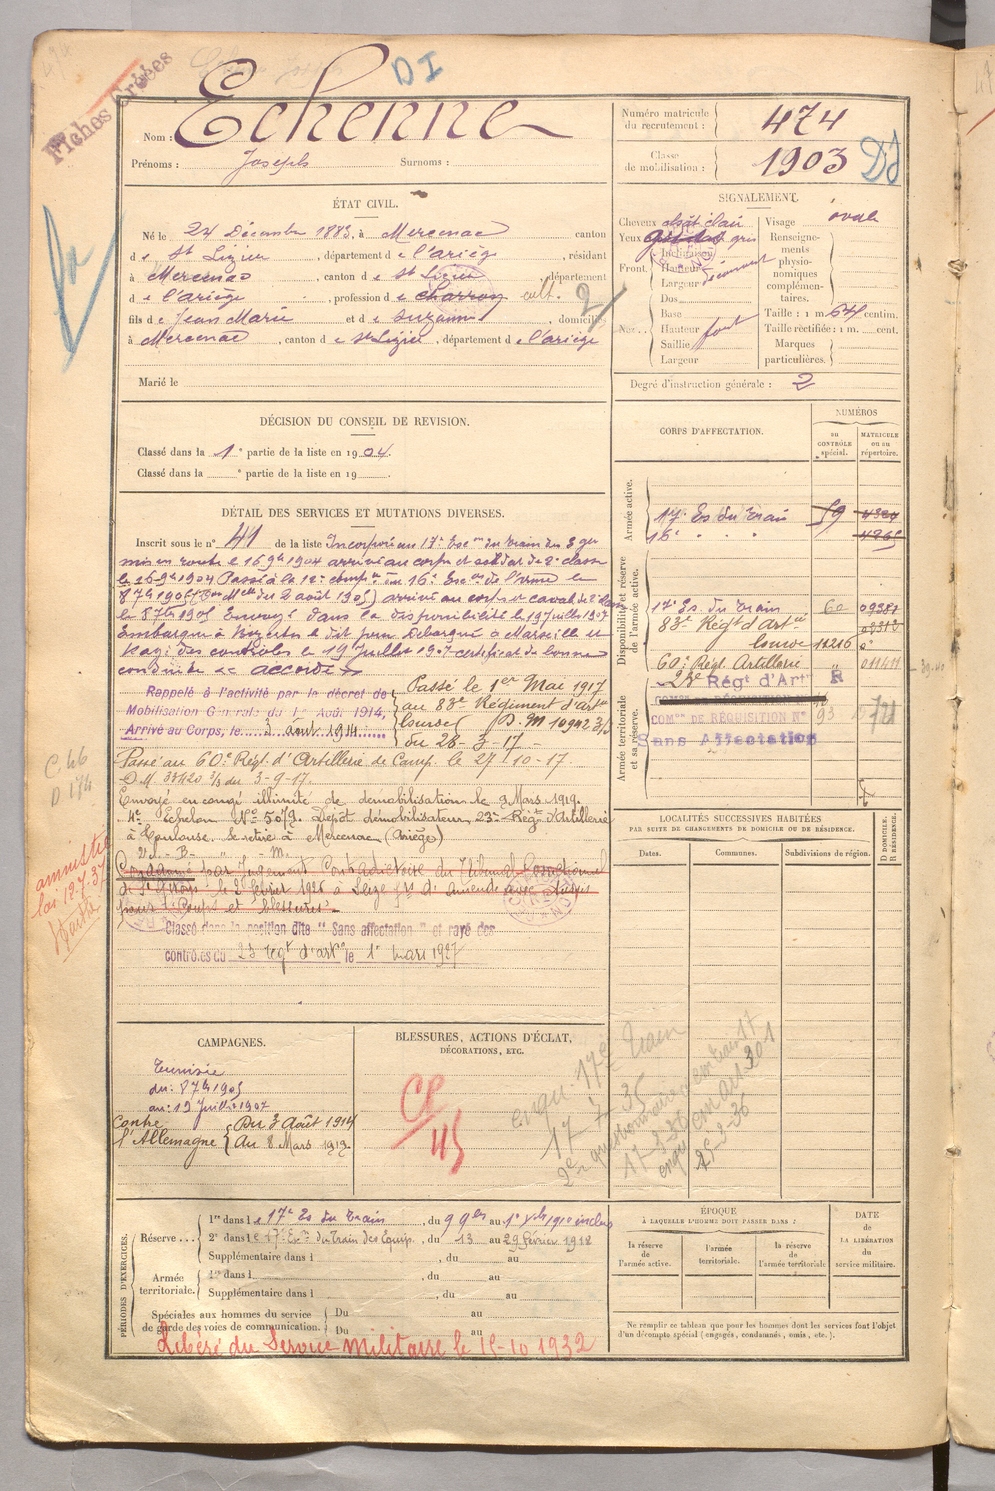 Fiches Créées
DI
Nom : Echenne
Prénoms : Joseph Surnoms :
Numéro matricule du recrutement : 474
Classe de mobilisation : 1903
ÉTAT CIVIL.
Né le 24 Décembre 1883, à Mercenac canton
de St Lizier, département de l'ariège, résidant
à Mercenac, canton de St Lizier, département
de l'ariège, profession de charron cult.
fils de Jean Marie et de Suzanne, domiciliés
à Mercenac, canton de St Lizier, département de l'ariège
Marié le
SIGNALEMENT.
Cheveux chât clair
Yeux gris
Front. Inclinaison
Hauteur
Largeur
Nez... Dos
Base
Hauteur fort
Saillie
Largeur
Visage ovale
Renseignements physionomiques complémentaires.
Taille : 1 m. 64 centim.
Taille rectifiée : 1 m. cent.
Marques particulières.
Degré d'instruction générale : 2
DÉCISION DU CONSEIL DE REVISION.
Classé dans la 1e partie de la liste en 1904.
Classé dans la e partie de la liste en 19 .
DÉTAIL DES SERVICES ET MUTATIONS DIVERSES.
Inscrit sous le n° 41 de la liste Incorporé au 17e Esc on du train des Eq
mis en route le 16 9bre 1904 arrivé au corps et soldat de 2e classe
le 16 9bre 1904 Passé à la 12e comp ie du 16e Esc on de l'arme le
8 7bre 1905 ( du 2 août 1905) arrivé au corps et caval. de 2e classe
le 8 7bre 1905 Envoyé dans la disponibilité le 19 juillet 1907
Embarqué à Bizerte le dit jour Débarqué à Marseille
Rayé des contrôles le 19 Juillet 1907 certificat de bonne
conduite « accordé »
Rappelé à l'activité par le décret de
Mobilisation Générale du 1er Août 1914,
Arrivé au Corps, le 3 août 1914
Passé le 1er Mai 1917
au 83e Régiment d'artie
lourde D.M 10902 3/3
du 28-3-17
Passé au 60e Régt. d'Artillerie de Camp. le 27-10-17.
D.M. 33420 3/3 du 3-9-17.
Envoyé en congé illimité de démobilisation le 9 Mars 1919.
4e Echelon N° 5079. Dépôt démobilisateur 23e Régt d'Artillerie
à Toulouse. Se retire à Mercenac (Ariège)
Condamné par Jugement Contradictoire du Tribunal Correctionnel
de St Girons le 2 février 1926 à Seize frs d'amende avec sursis
pour "Coups et blessures".
Classé dans la position dite "Sans affectation" et rayé des
contrôles du 23 régt d'artie le 1er mars 1927
C 46
D 174
amnistié
loi 12.7.37
CORPS D'AFFECTATION.
NUMÉROS
au CONTRÔLE spécial.
MATRICULE ou au répertoire.
Armée active.
17e Es du train 59 4384
16e " " " 4265
Disponibilité et réserve de l'armée active.
17e Es. du train 60 09387
83e Régt d'Artie
lourde 11216
60e Régt. Artillerie " 011411
Armée territoriale et sa réserve.
23e Régt d'Art R
COMon DE RÉQUISITION N° 93
Sans Affectation
LOCALITÉS SUCCESSIVES HABITÉES
PAR SUITE DE CHANGEMENTS DE DOMICILE OU DE RÉSIDENCE.
Dates. Communes. Subdivisions de région.
D DOMICILE. R RÉSIDENCE.
CAMPAGNES.
Tunisie
du: 8 7bre 1905
au: 19 Juillet 1907
Contre l'Allemagne
Du 3 Août 1914
Au 8 Mars 1919.
BLESSURES, ACTIONS D'ÉCLAT,
DÉCORATIONS, ETC.
17e train
17-7-35
25-2-36
PÉRIODES D'EXERCICES.
Réserve...
1re dans le 17e Es du train, du 9 9bre au 1er Xbre 1910 inclus
2e dans le 17e Esc. du Train des Equip., du 13 au 29 Février 1912
Supplémentaire dans l , du au
Armée territoriale.
1re dans l , du au
Supplémentaire dans l , du au
Spéciales aux hommes du service
de garde des voies de communication.
Du au
Du au
Libéré du Service militaire le 15-10-1932
ÉPOQUE
À LAQUELLE L'HOMME DOIT PASSER DANS :
la réserve de l'armée active.
l'armée territoriale.
la réserve de l'armée territoriale
DATE de LA LIBÉRATION du service militaire.
Ne remplir ce tableau que pour les hommes dont les services font l'objet
d'un décompte spécial (engagés, condamnés, omis, etc.).